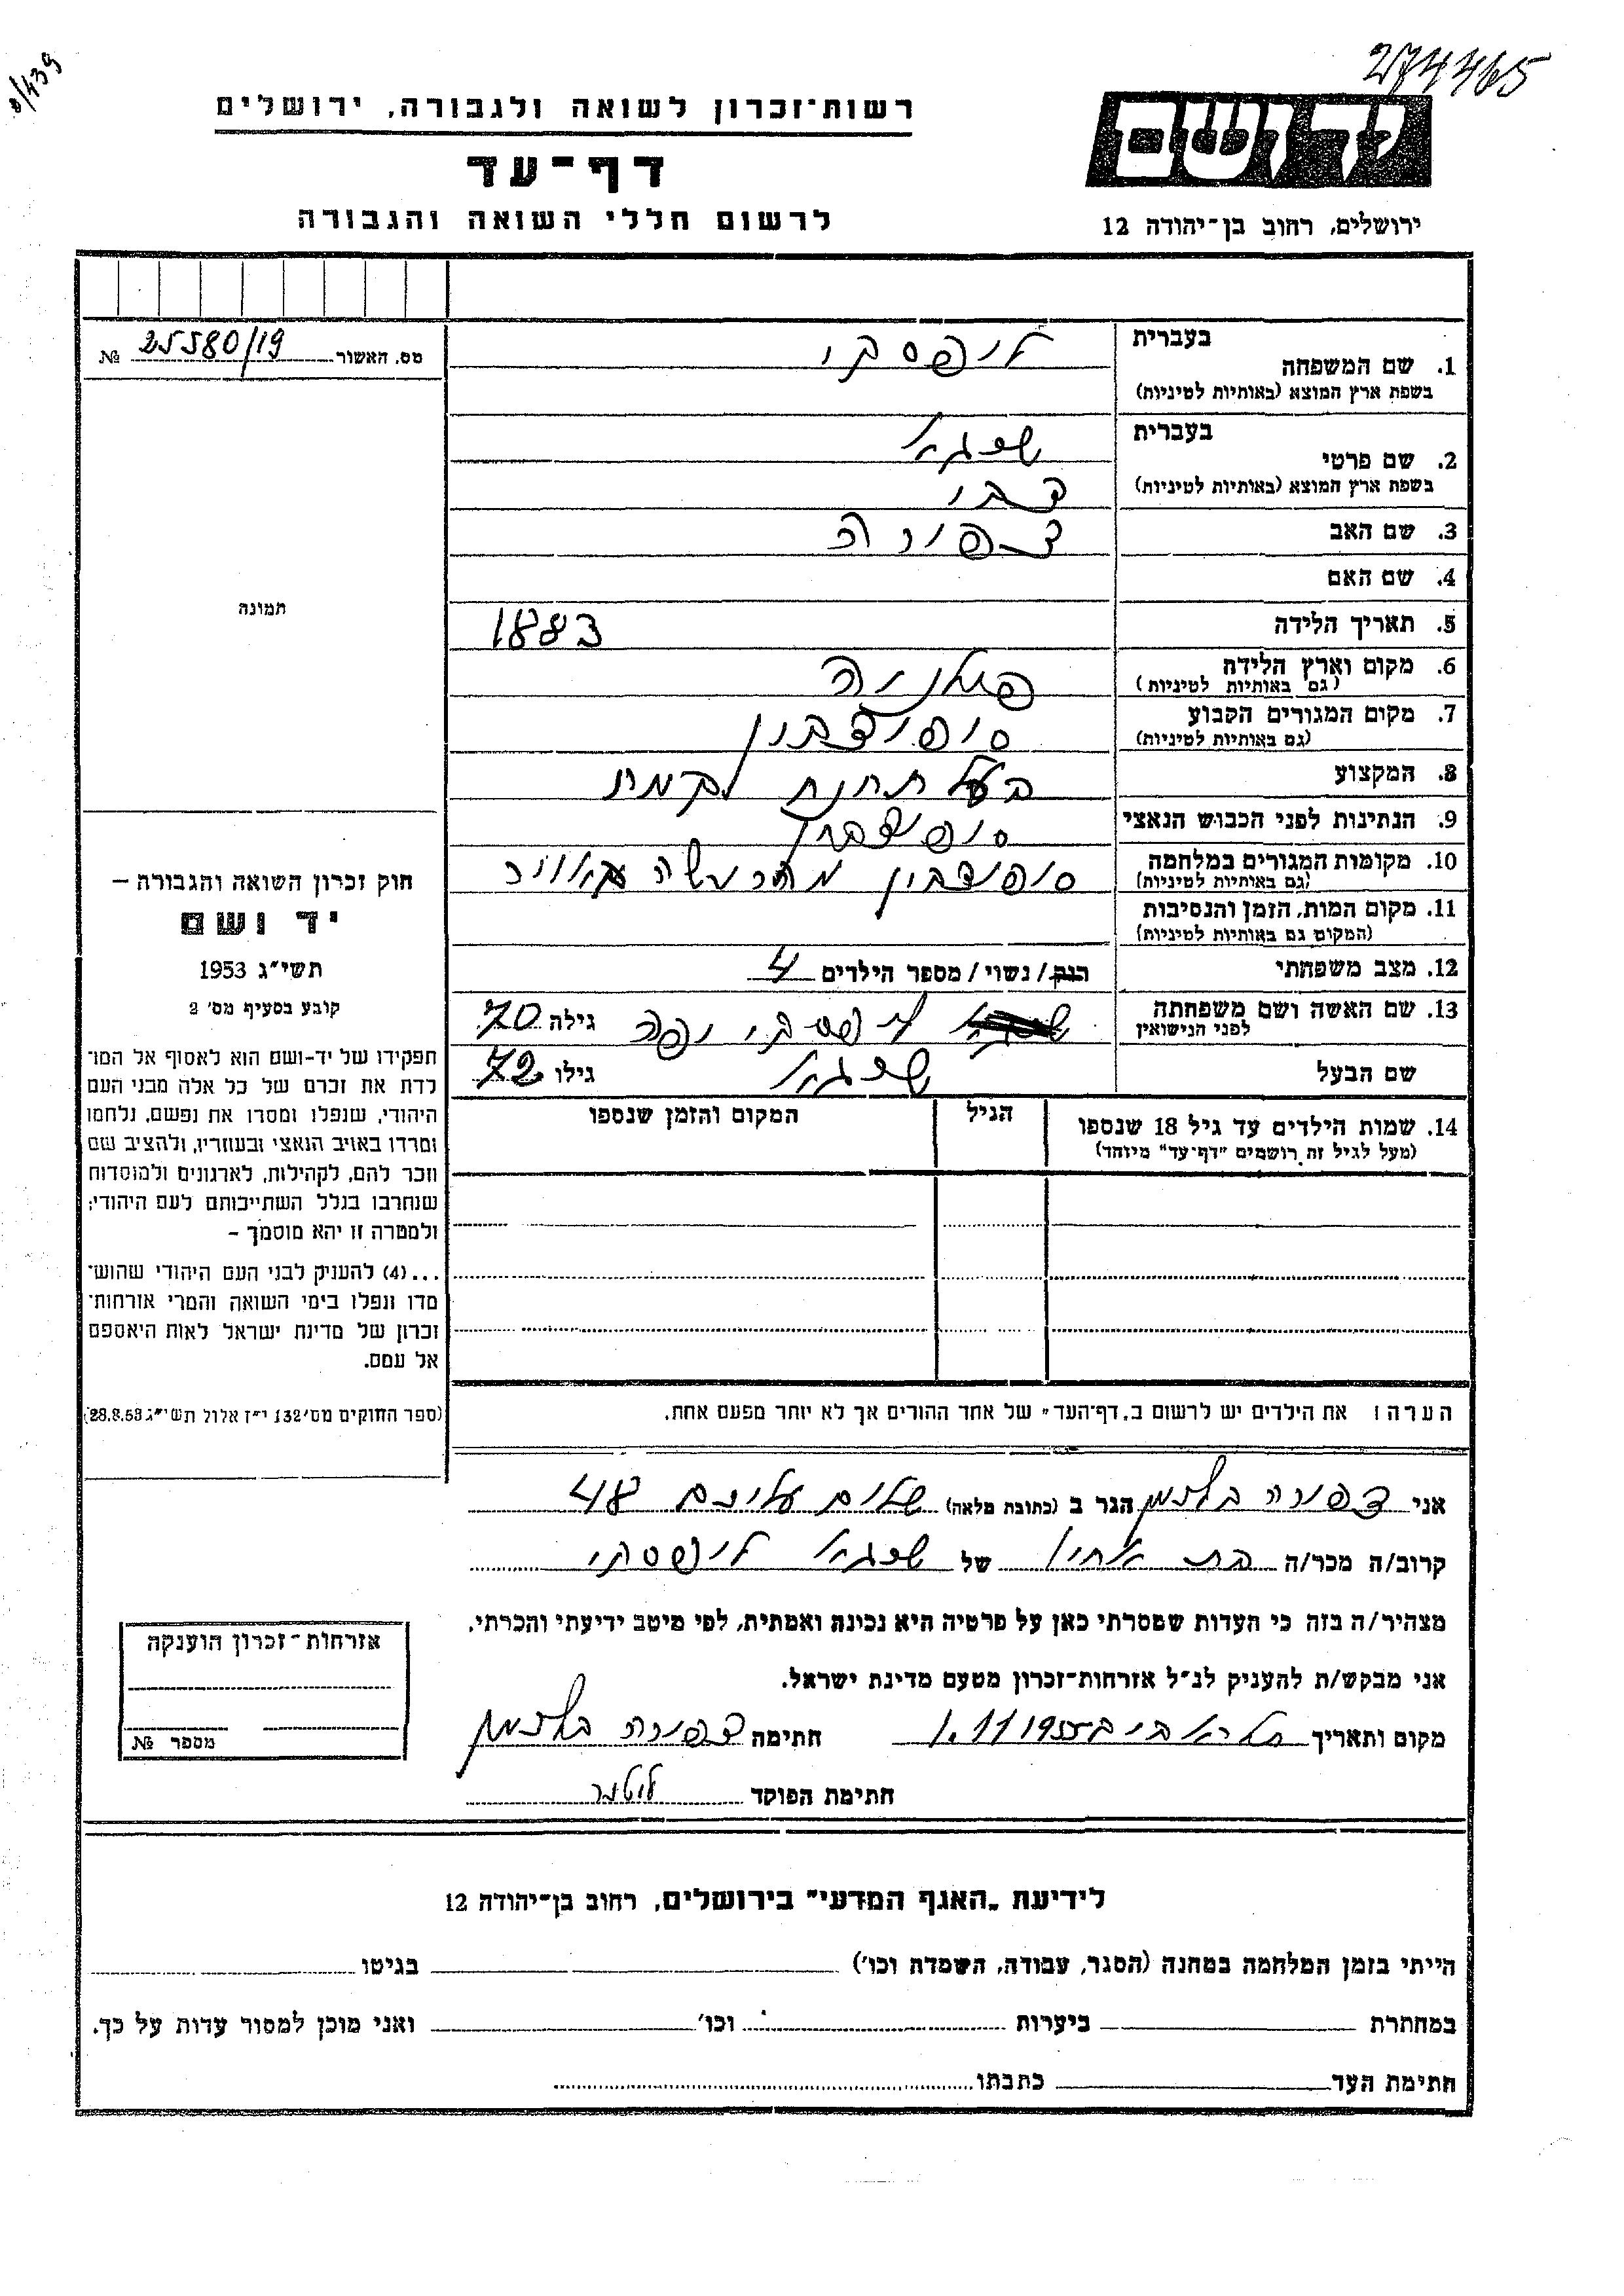 274465
8/439
יד ושם
ירושלים, רחוב בן־יהודה 12
רשות־זכרון לשואה ולגבורה, ירושלים
דף־עד
לרשום חללי השואה והגבורה
מס. האשור 25580/19 №
תמונה
חוק זכרון השואה והגבורה –
יד ושם
תשי"ג 1953
קובע בסעיף מס' 2
תפקידו של יד-ושם הוא לאסוף אל המו־
לדת את זכרם של כל אלה מבני העם
היהודי, שנפלו ומסרו את נפשם, נלחמו
ומרדו באויב הנאצי ובעוזריו, ולהציב שם
וזכר להם, לקהילות, לארגונים ולמוסדות
שנחרבו בגלל השתייכותם לעם היהודי;
ולמטרה זו יהא מוסמך –
...(4) להעניק לבני העם היהודי שהוש־
מדו ונפלו בימי השואה והמרי אזרחות־
זכרון של מדינת ישראל לאות היאספם
אל עמם.
(ספר החוקים מס' 132 י"ז אלול תשי"ג 28.8.53)
בעברית ליפסקי
1. שם המשפחה
בשפת ארץ המוצא (באותיות לטיניות)
בעברית
2. שם פרטי
בשפת ארץ המוצא (באותיות לטיניות)
3. שם האב צפורה
4. שם האם
5. תאריך הלידה 1883
6. מקום וארץ הלידה
(גם באותיות לטיניות)
7. מקום המגורים הקבוע סופוצקין
(גם באותיות לטיניות)
8. המקצוע בעל תחנת קמח
9. הנתינות לפני הכבוש הנאצי סופוצקין
10. מקומות המגורים במלחמה סופוצקין
(גם באותיות לטיניות)
11. מקום המות, הזמן והנסיבות
(המקום גם באותיות לטיניות)
12. מצב משפחתי רווק/ נשוי/ מספר הילדים 4
13. שם האשה ושם משפחתה ליפסקי יפה גילה 70
לפני הנישואין
שם הבעל גילו 72
14. שמות הילדים עד גיל 18 שנספו הגיל המקום והזמן שנספו
(מעל לגיל זה רושמים "דף־עד" מיוחד)
הערה: את הילדים יש לרשום ב„דף־העד" של אחד ההורים אך לא יותר מפעם אחת.
אני צפורה הגר ב (כתובת מלאה) שלום עליכם 48
קרוב/ה מכר/ה בת אחיו של ליפסקי
מצהיר/ה בזה כי העדות שמסרתי כאן על פרטיה היא נכונה ואמתית, לפי מיטב ידיעתי והכרתי.
אני מבקש/ת להעניק לנ"ל אזרחות־זכרון מטעם מדינת ישראל.
מקום ותאריך תל אביב 1.11.1955 חתימה צפורה
חתימת הפוקד
אזרחות־זכרון הוענקה
מספר №
לידיעת „האגף המדעי" בירושלים, רחוב בן־יהודה 12
הייתי בזמן המלחמה במחנה (הסגר, עבודה, השמדה וכו') בגיטו
במחתרת ביערות וכו' ואני מוכן למסור עדות על כך.
חתימת העד כתבתו